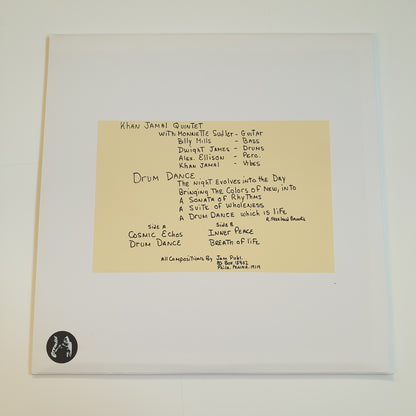 Khan Jamal Quintet
with Monnette Sudler - Guitar
Billy Mills - Bass
Dwight James - Drums
Alex. Ellison - Perc.
Khan Jamal - Vibes
Drum Dance
The Night Evolves into the Day
Bringing the Colors of New, into
A Sonata of Rhythms
A Suite of Wholeness
A Drum Dance which is life
Side A
Cosmic Echos
Drum Dance
Side B
Inner Peace
Breath of life
All Compositions By Jam Publ.
PO Box
Phila. Penna.